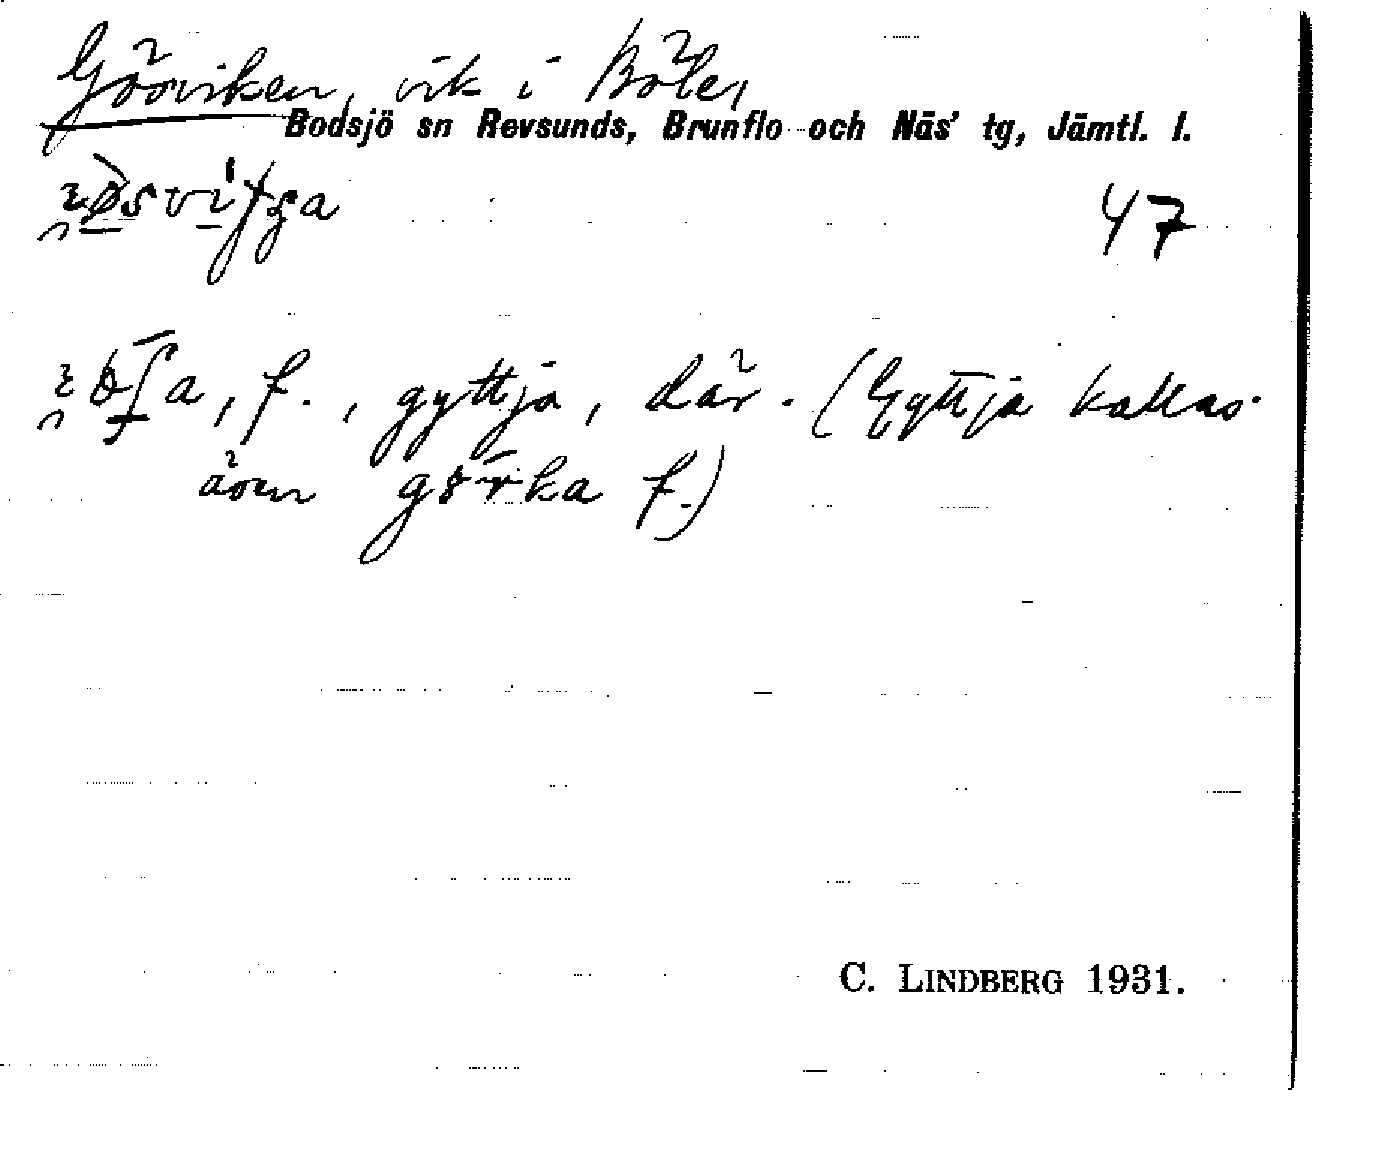 Gösviken, vik i Böle,
Bodsjö sn Revsunds, Brunflo och Näs' tg, Jämtl. l.
47
f., gyttja, där. (Gyttja kallas
även f.)
C. LINDBERG 1931.